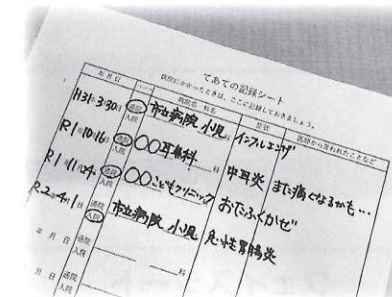 てあての記録シート
病院にかかったときは、ここに記録しておきましょう。
年月日 病院名・科名 症状 医師から言われたことなど
H31年3月30日 通院 入院 市立病院 小児科 インフルエンザ
R1年10月16日 通院 入院 〇〇耳鼻科 中耳炎 また痛くなるかも…
R1年11月24日 通院 入院 〇〇こどもクリニック おたふくかぜ
R2年4月1日 通院 入院 市立病院 小児科 急性胃腸炎
年 月 日 通院 入院 科
月 日 通院 入院